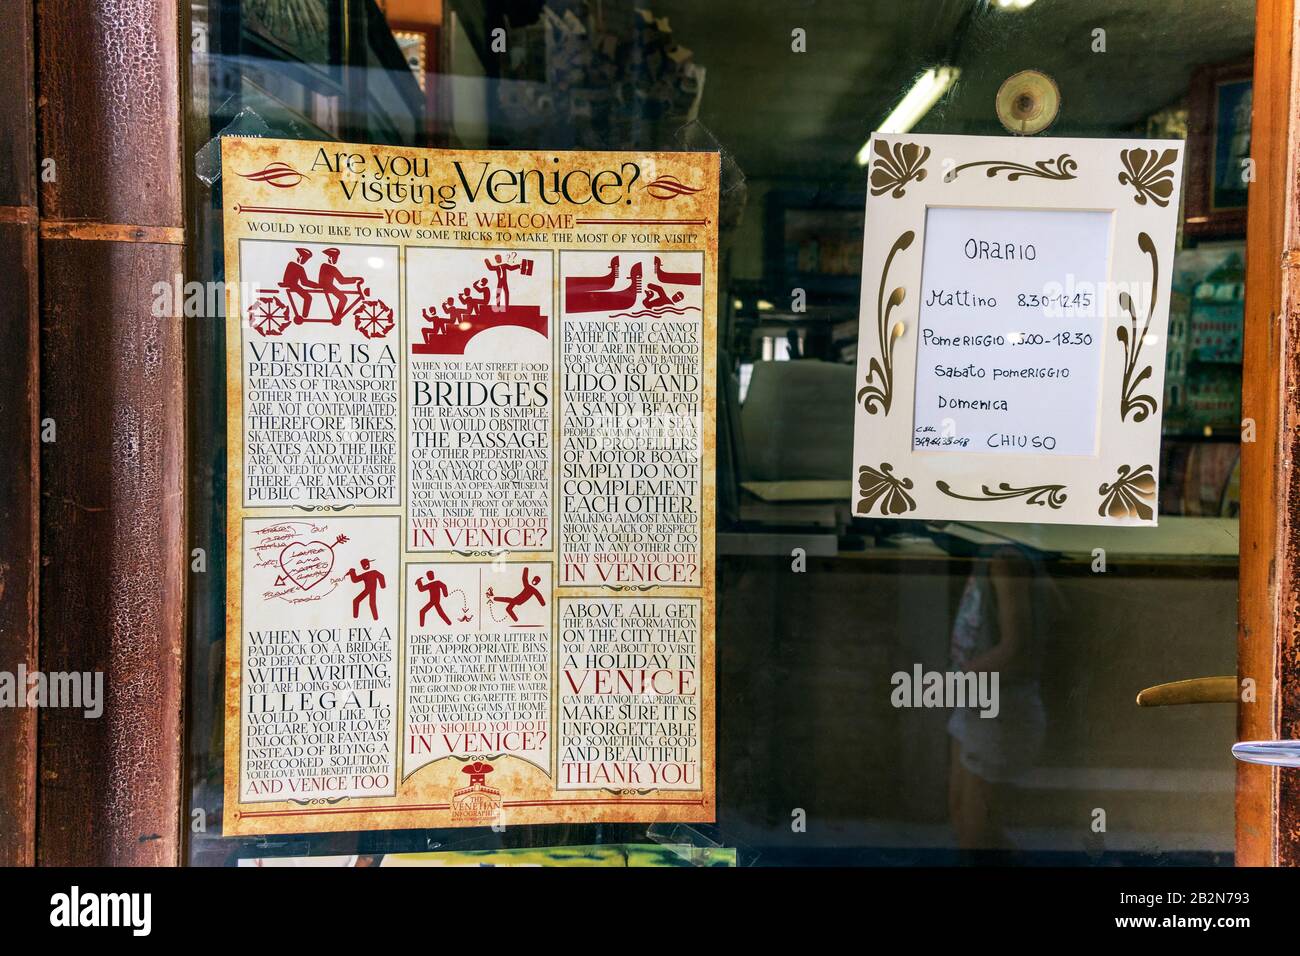 Are you
visiting Venice?
YOU ARE WELCOME
WOULD YOU LIKE TO KNOW SOME TRICKS TO MAKE THE MOST OF YOUR VISIT?
VENICE IS A
PEDESTRIAN CITY
MEANS OF TRANSPORT
OTHER THAN YOUR LEGS
ARE NOT CONTEMPLATED;
THEREFORE BIKES,
SKATEBOARDS, SCOOTERS,
SKATES AND THE LIKE
ARE NOT ALLOWED HERE.
IF YOU NEED TO MOVE FASTER
THERE ARE MEANS OF
PUBLIC TRANSPORT
??
WHEN YOU EAT STREET FOOD
YOU SHOULD NOT SIT ON THE
BRIDGES
THE REASON IS SIMPLE:
YOU WOULD OBSTRUCT
THE PASSAGE
OF OTHER PEDESTRIANS.
YOU CANNOT CAMP OUT
IN SAN MARCO SQUARE,
WHICH IS AN OPEN-AIR MUSEUM.
YOU WOULD NOT EAT A
SANDWICH IN FRONT OF MONNA
LISA, INSIDE THE LOUVRE.
WHY SHOULD YOU DO IT
IN VENICE?
IN VENICE YOU CANNOT
BATHE IN THE CANALS.
IF YOU ARE IN THE MOOD
FOR SWIMMING AND BATHING
YOU CAN GO TO THE
LIDO ISLAND
WHERE YOU WILL FIND
A SANDY BEACH
AND THE OPEN SEA.
PEOPLE SWIMMING IN THE CANALS
AND PROPELLERS
OF MOTOR BOATS
SIMPLY DO NOT
COMPLEMENT
EACH OTHER.
WALKING ALMOST NAKED
SHOWS A LACK OF RESPECT
YOU WOULD NOT DO
THAT IN ANY OTHER CITY.
WHY SHOULD YOU DO IT
IN VENICE?
LAURA
AMA
MATTEO
PAOLO
WHEN YOU FIX A
PADLOCK ON A BRIDGE,
OR DEFACE OUR STONES
WITH WRITING,
YOU ARE DOING SOMETHING
ILLEGAL.
WOULD YOU LIKE TO
DECLARE YOUR LOVE?
UNLOCK YOUR FANTASY
INSTEAD OF BUYING A
PRECOOKED SOLUTION.
YOUR LOVE WILL BENEFIT FROM IT
AND VENICE TOO
DISPOSE OF YOUR LITTER IN
THE APPROPRIATE BINS.
IF YOU CANNOT IMMEDIATELY
FIND ONE, TAKE IT WITH YOU
AVOID THROWING WASTE ON
THE GROUND OR INTO THE WATER,
INCLUDING CIGARETTE BUTTS
AND CHEWING GUMS AT HOME,
YOU WOULD NOT DO IT.
WHY SHOULD YOU DO IT
IN VENICE?
ABOVE ALL GET
THE BASIC INFORMATION
ON THE CITY THAT
YOU ARE ABOUT TO VISIT
A HOLIDAY IN
VENICE
CAN BE A UNIQUE EXPERIENCE.
MAKE SURE IT IS
UNFORGETTABLE
DO SOMETHING GOOD
AND BEAUTIFUL.
THANK YOU
THE
VENETIAN
INFOGRAPHIC
ORARIO
Mattino 8.30-12.45
POMERIGGIO 15.00-18.30
SABATO POMERIGGIO
DOMENICA
CHIUSO
alamy
Image ID: 2B2N793
www.alamy.com